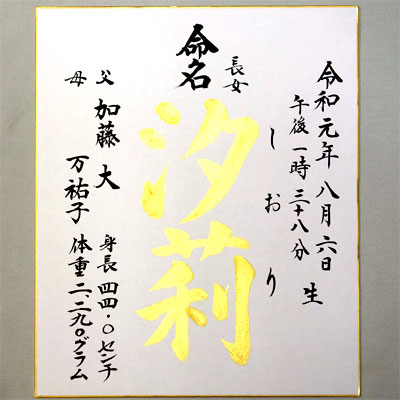 令和元年八月六日生
午後一時三十八分
しおり
長女
命名
汐莉
父 加藤 大
母 万祐子
身長 四四・〇センチ
体重 二、二九〇グラム